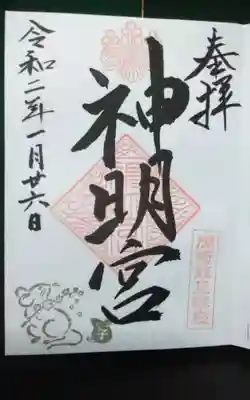 奉拝
神明宮
令和二年一月廿六日
子